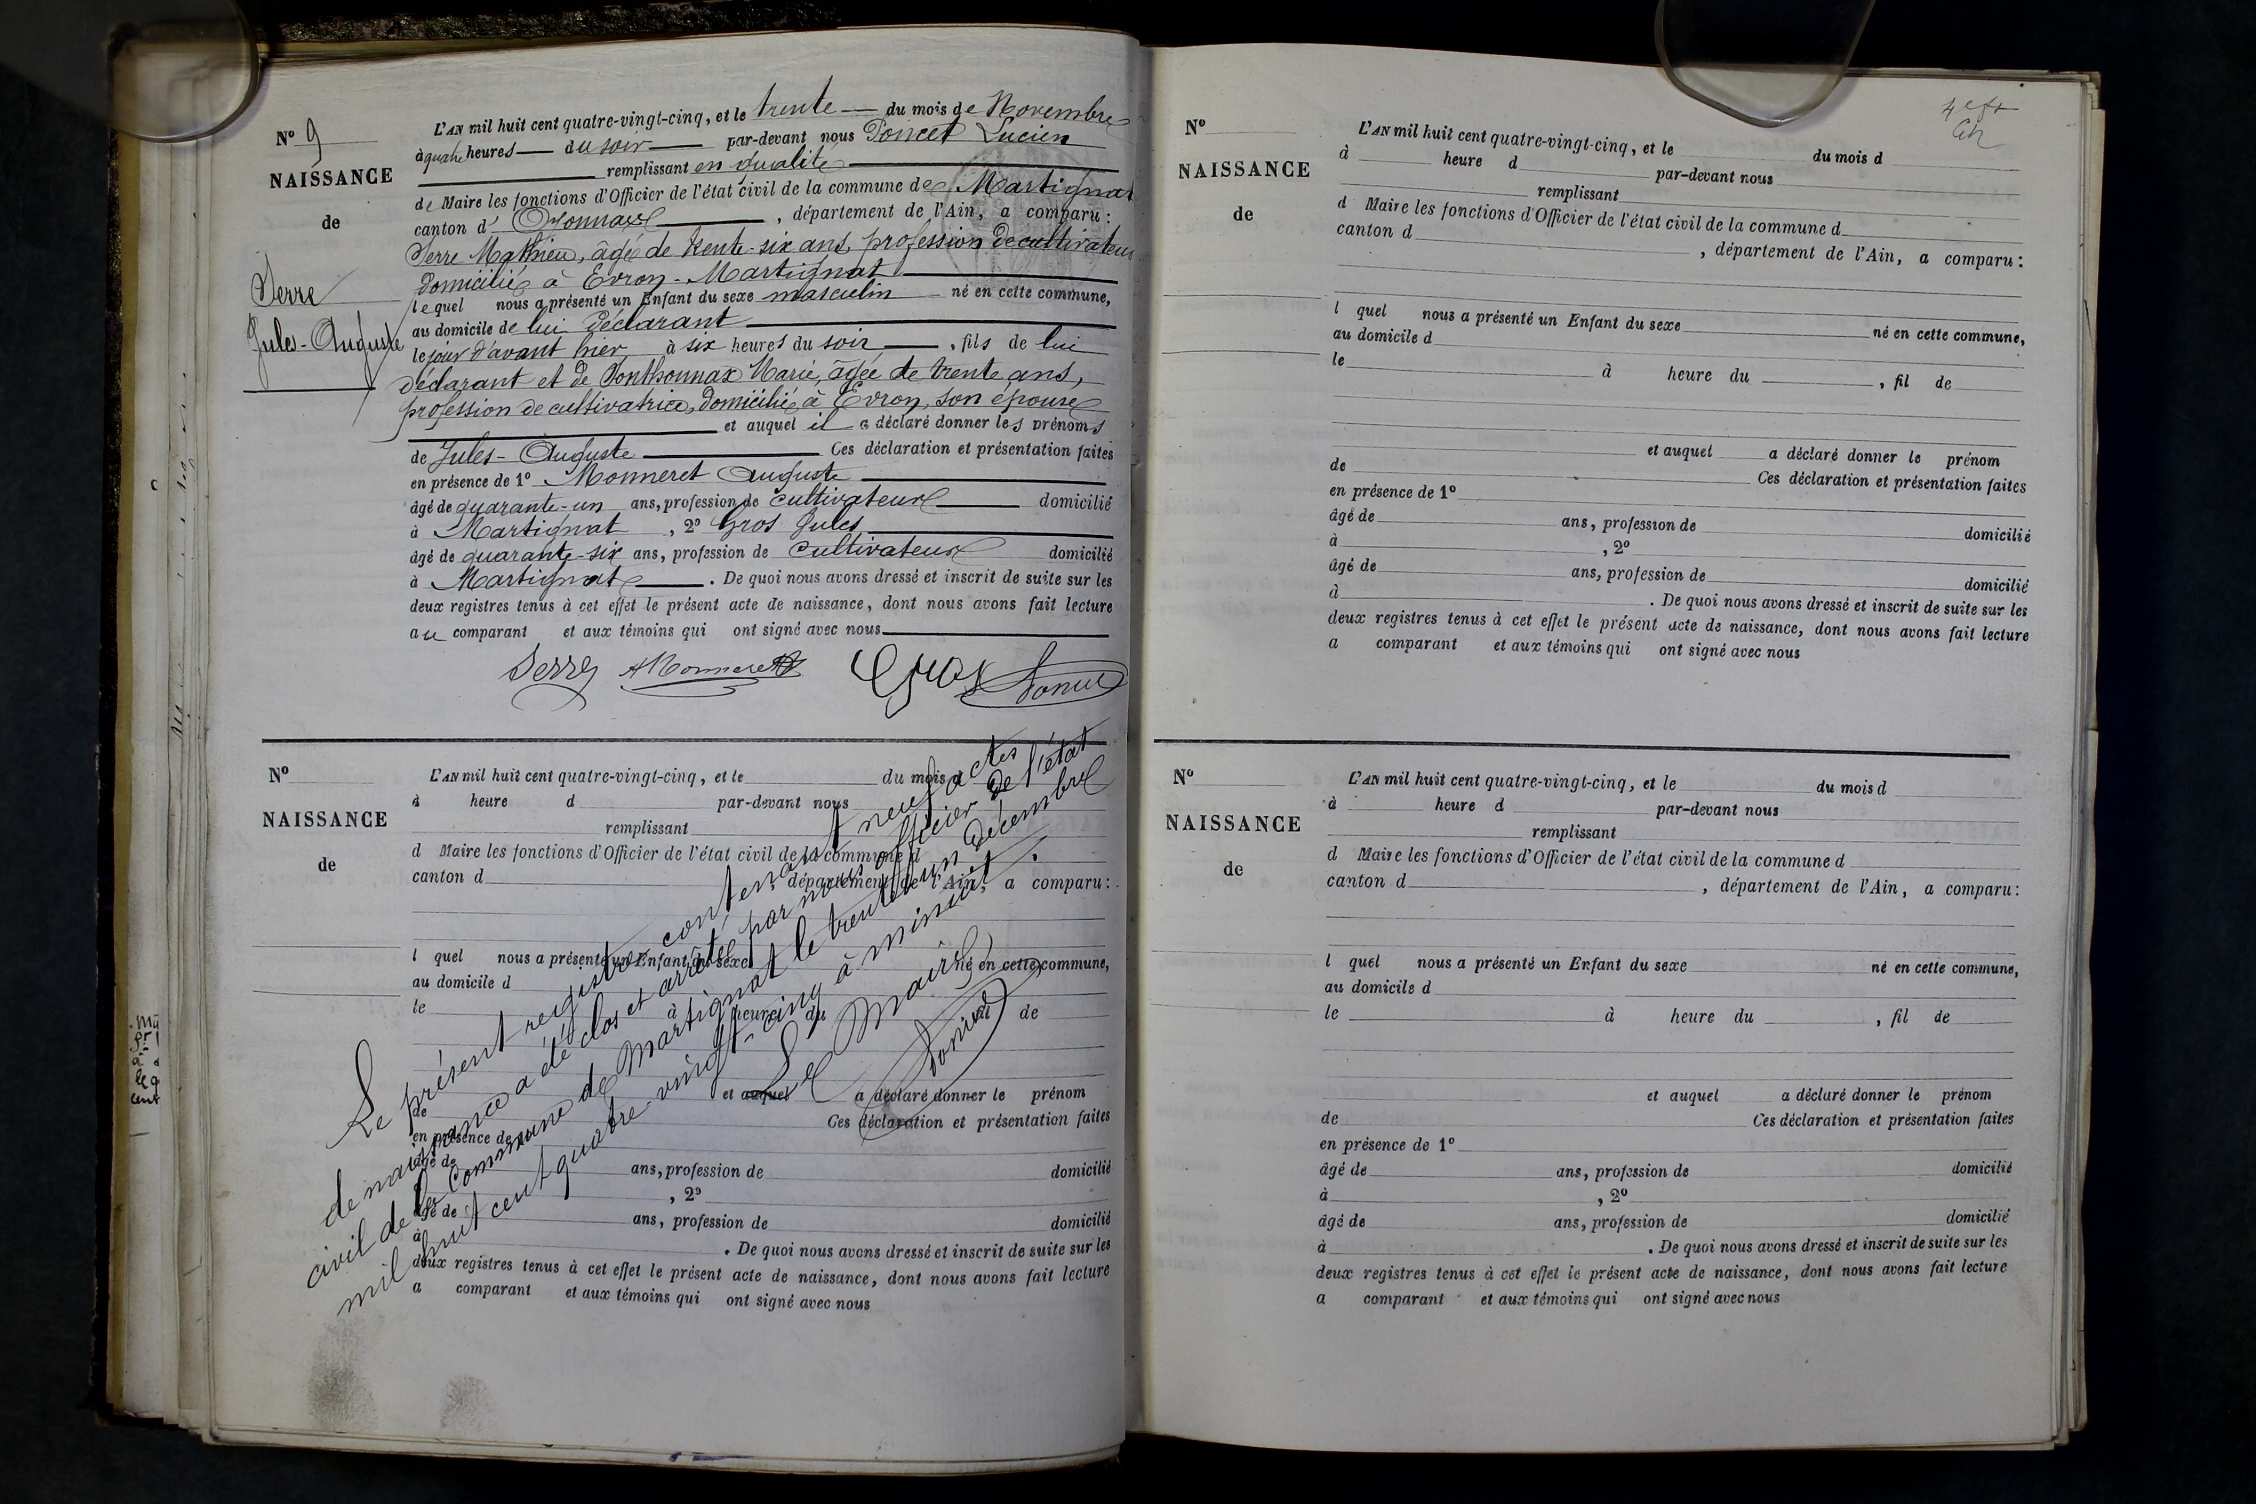 N° 9
NAISSANCE
de
Serre
Jules-Auguste
L'AN mil huit cent quatre-vingt-cinq, et le trente du mois de Novembre
à quatre heures du soir par-devant nous Poncet Lucien
remplissant en qualité
de Maire les fonctions d'Officier de l'état civil de la commune de Martignat
canton d'Oyonnax, département de l'Ain, a comparu:
Serre Mathieu, âgé de trente-six ans, profession de cultivateur
domicilié à Evron-Martignat
lequel nous a présenté un Enfant du sexe masculin né en cette commune,
au domicile de lui déclarant
le jour d'avant hier à six heures du soir, fils de lui
déclarant et de Ponthonnax Marie, âgée de trente ans,
profession de cultivatrice, domiciliée à Evron, son épouse
et auquel il a déclaré donner les prénoms
de Jules-Auguste Ces déclaration et présentation faites
en présence de 1° Monneret Auguste
âgé de quarante-un ans, profession de cultivateur domicilié
à Martignat, 2° Gros Jules
âgé de quarante-six ans, profession de cultivateur domicilié
à Martignat. De quoi nous avons dressé et inscrit de suite sur les
deux registres tenus à cet effet le présent acte de naissance, dont nous avons fait lecture
au comparant et aux témoins qui ont signé avec nous
Serre A Monneret Gros Poncet
N°
NAISSANCE
de
L'AN mil huit cent quatre-vingt-cinq, et le du mois d
à heure d par-devant nous
remplissant
d Maire les fonctions d'Officier de l'état civil de la commune d
canton d , département de l'Ain, a comparu:
l quel nous a présenté un Enfant du sexe né en cette commune,
au domicile d
le à heure du , fil de
et auquel a déclaré donner le prénom
de Ces déclaration et présentation faites
en présence de 1°
âgé de ans, profession de domicilié
à , 2°
âgé de ans, profession de domicilié
à . De quoi nous avons dressé et inscrit de suite sur les
deux registres tenus à cet effet le présent acte de naissance, dont nous avons fait lecture
a comparant et aux témoins qui ont signé avec nous
Le présent registre contenant neuf actes
de naissance a été clos et arrêté par nous officier de l'état
civil de la Commune de Martignat le trente un décembre
mil huit cent quatre-vingt-cinq à minuit.
Le Maire
Poncet
N°
NAISSANCE
de
L'AN mil huit cent quatre-vingt-cinq, et le du mois d
à heure d par-devant nous
remplissant
d Maire les fonctions d'Officier de l'état civil de la commune d
canton d , département de l'Ain, a comparu:
l quel nous a présenté un Enfant du sexe né en cette commune,
au domicile d
le à heure du , fil de
et auquel a déclaré donner le prénom
de Ces déclaration et présentation faites
en présence de 1°
âgé de ans, profession de domicilié
à , 2°
âgé de ans, profession de domicilié
à . De quoi nous avons dressé et inscrit de suite sur les
deux registres tenus à cet effet le présent acte de naissance, dont nous avons fait lecture
a comparant et aux témoins qui ont signé avec nous
N°
NAISSANCE
de
L'AN mil huit cent quatre-vingt-cinq, et le du mois d
à heure d par-devant nous
remplissant
d Maire les fonctions d'Officier de l'état civil de la commune d
canton d , département de l'Ain, a comparu:
l quel nous a présenté un Enfant du sexe né en cette commune,
au domicile d
le à heure du , fil de
et auquel a déclaré donner le prénom
de Ces déclaration et présentation faites
en présence de 1°
âgé de ans, profession de domicilié
à , 2°
âgé de ans, profession de domicilié
à . De quoi nous avons dressé et inscrit de suite sur les
deux registres tenus à cet effet le présent acte de naissance, dont nous avons fait lecture
a comparant et aux témoins qui ont signé avec nous